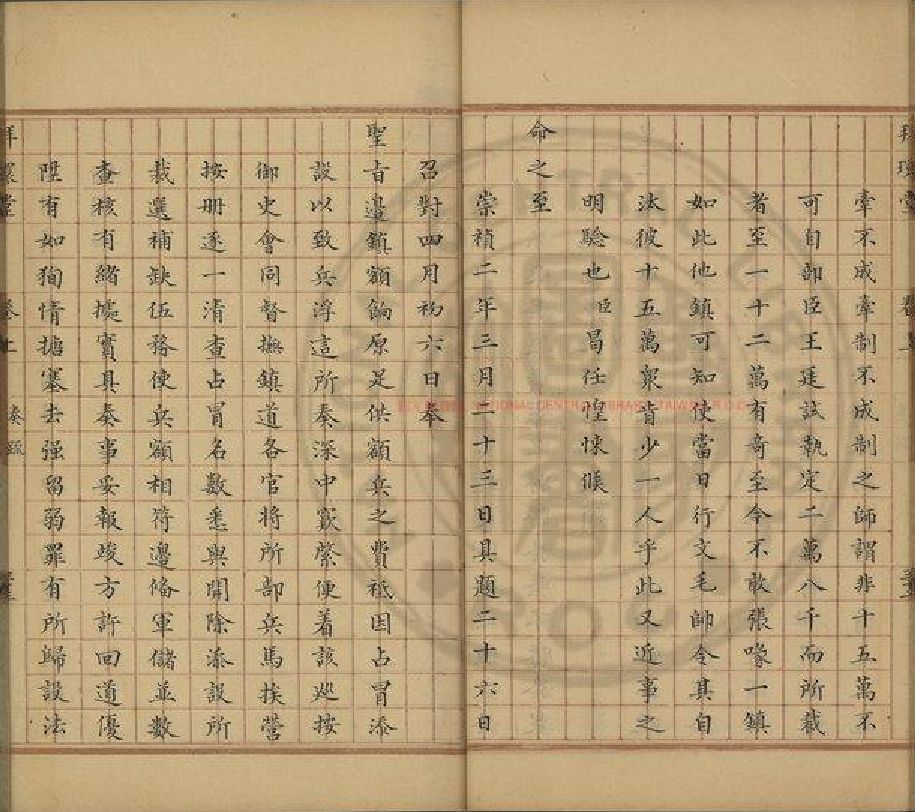 牽不成牽制不成制之師謂非十五萬不
可自部臣王廷試執定二萬八千而所裁
者至一十二萬有奇至今不敢張喙一鎮
如此他鎮可知使當日行文毛帥令其自
汰彼十五萬衆肯少一人乎此又近事之
明驗也臣曷任惶悚候
命之至
崇禎二年三月二十三日具題二十六日
召對四月初六日奉
聖旨邊鎮額餉原是供額兵之費祗因占冒添
設以致兵浮這所奏深中窾綮便着該廵按
御史會同督撫鎮道各官將所部兵馬挨營
按册逐一清查占冒名數悉與開除添設所
裁選補缺伍務使兵額相符邊俻軍儲並數
查核有緒據實具奏事妥報竣方許回道優
陞有如狥情搪塞去强留弱罪有所歸設法
奏疏